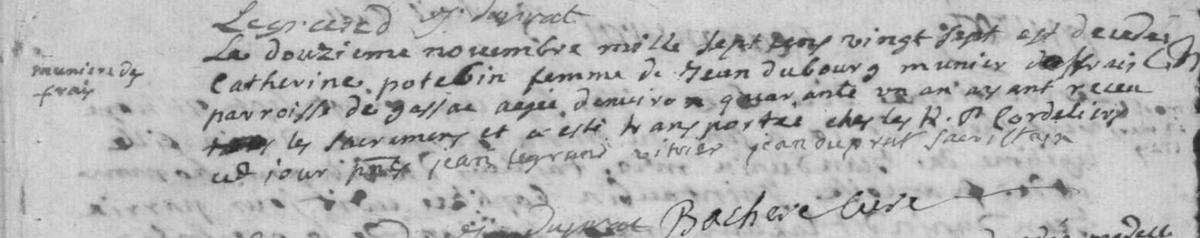 Legrand duprat
Le douzieme novembre mille sept cens vingt sept est decedée
munier de frais
Catherine potebin femme de Jean dubourg munier de frais
parroisse de gassac agée denviron quarante un an ayant receu
tous les sacremens et a esté transportée ches les R. P. Cordeliers
ced jour pnts jean legrand vitrier jean duprat sacristain
duprat Bachere Cure